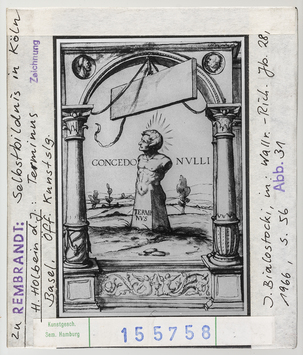 zu REMBRANDT: Selbstbildnis in Köln
Zeichnung
H. Holbein d.J.: Terminus
Basel, Öff. Kunstslg.
CONCEDO NVLLI
TERMI
NVS
J. Bialostocki, in: Wallr.-Rich. Jb. 28,
1966, S. 56
Abb. 31
Kunstgesch.
Sem. Hamburg
155758